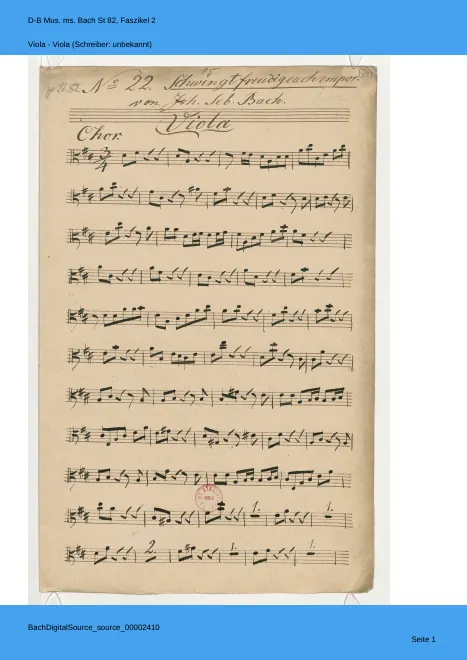 D-B Mus. ms. Bach St 82, Faszikel 2
Viola - Viola (Schreiber: unbekannt)
No 22. Schwingt freudig euch empor.
von Joh. Seb. Bach.
Viola
Chor.
3/4
1.
1.
2.
1.
1.
BachDigitalSource_source_00002410
Seite 1